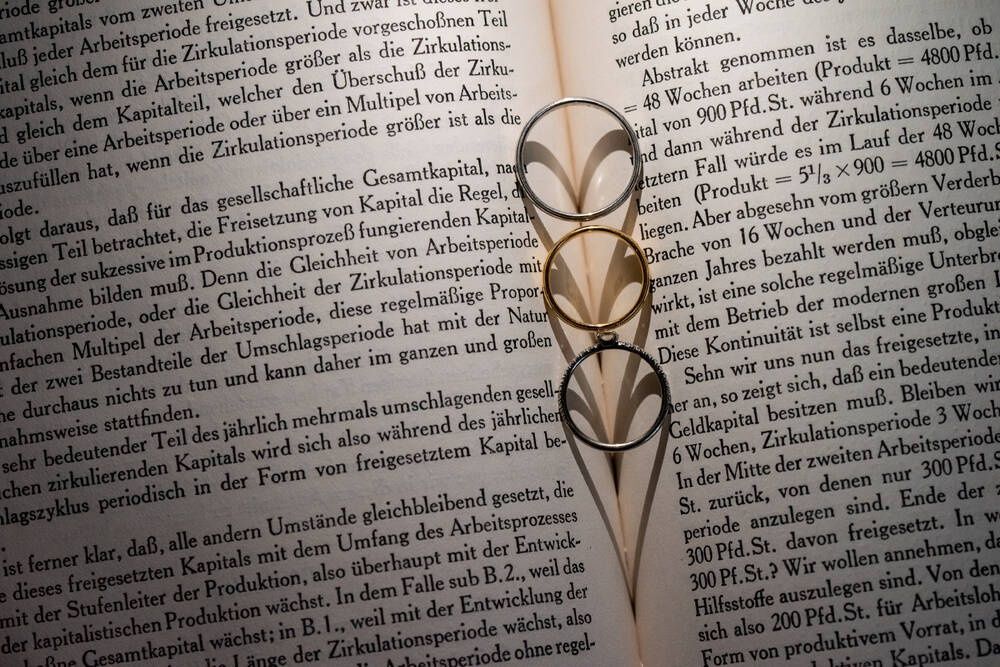 samtkapitals vom zweiten
Schluß jeder Arbeitsperiode freigesetzt. Und zwar ist dieses
Kapital gleich dem für die Zirkulationsperiode vorgeschoßnen Teil
kapitals, wenn die Arbeitsperiode größer als die Zirkulations-
d gleich dem Kapitalteil, welcher den Überschuß der Zirku-
de über eine Arbeitsperiode oder über ein Multipel von Arbeits-
uszufüllen hat, wenn die Zirkulationsperiode größer ist als die
iode.
olgt daraus, daß für das gesellschaftliche Gesamtkapital, nac
ssigen Teil betrachtet, die Freisetzung von Kapital die Regel, d
ösung der sukzessive im Produktionsprozeß fungierenden Kapital-
Ausnahme bilden muß. Denn die Gleichheit von Arbeitsperiode
ulationsperiode, oder die Gleichheit der Zirkulationsperiode mit
nfachen Multipel der Arbeitsperiode, diese regelmäßige Propor-
t der zwei Bestandteile der Umschlagsperiode hat mit der Natur
he durchaus nichts zu tun und kann daher im ganzen und großen
nahmsweise stattfinden.
sehr bedeutender Teil des jährlich mehrmals umschlagenden gesell-
lichen zirkulierenden Kapitals wird sich also während des jährlichen
hlagszyklus periodisch in der Form von freigesetztem Kapital be-
ist ferner klar, daß, alle andern Umstände gleichbleibend gesetzt, die
e dieses freigesetzten Kapitals mit dem Umfang des Arbeitsprozesses
mit der Stufenleiter der Produktion, also überhaupt mit der Entwick-
der kapitalistischen Produktion wächst. In dem Falle sub B.2., weil das
Gesamtkapital wächst; in B.1., weil mit der Entwicklung der
Länge der Zirkulationsperiode wächst, also
Arbeitsperiode ohne regel-
gieren
so daß in jeder Woche
werden können.
Abstrakt genommen ist es dasselbe, ob
= 48 Wochen arbeiten (Produkt = 4800 Pfd.
ital von 900 Pfd. St. während 6 Wochen im
nd dann während der Zirkulationsperiode
letztern Fall würde es im Lauf der 48 Woch
beiten (Produkt = 5 1/3 × 900 = 4800 Pfd. S
liegen. Aber abgesehn vom größern Verderb
Brache von 16 Wochen und der Verteurun
ganzen Jahres bezahlt werden muß, obglei
wirkt, ist eine solche regelmäßige Unterbre
mit dem Betrieb der modernen großen I
Diese Kontinuität ist selbst eine Produkti
Sehn wir uns nun das freigesetzte, in
her an, so zeigt sich, daß ein bedeutender
Geldkapital besitzen muß. Bleiben wir
6 Wochen, Zirkulationsperiode 3 Woch
In der Mitte der zweiten Arbeitsperiode
St. zurück, von denen nur 300 Pfd. S
periode anzulegen sind. Ende der
300 Pfd. St. davon freigesetzt. In w
300 Pf. St.? Wir wollen annehmen, da
Hilfsstoffe auszulegen sind. Von den
sich also 200 Pfd. St. für Arbeitsloh
Form von produktivem Vorrat, in d
Kapitals. Da